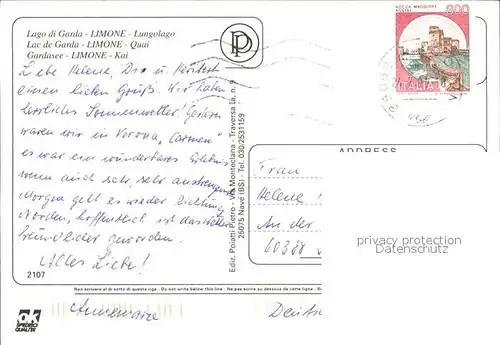 Lago di Garda - LIMONE - Lungolago
Lac de Garda - LIMONE - Quai
Gardasee - LIMONE - Kai
Liebe Helene, Dir u.
einen lieben Gruß. Wir haben
herrliches Sommerwetter! Gestern
waren wir in Verona, "Carmen"
es war ein wunderbares Erlebnis
wenn auch sehr, sehr anstrengend
Morgen geht es wieder Richtung
Norden, hoffentlich ist das Wetter
freundlicher geworden.
Alles Liebe!
Annemarie
2107
OK
SPEDIRECI
QUALITA'
PD
Ediz. Poiatti Pietro - Via Monteclana - Traversa Ia, n. 9
25075 Nave (BS) - Tel. 030/2531159
ROCCA MAGGIORE
ASSISI
800
ITALIA
ADDRESS
Frau
Helene
An der
60388
Deuts
protected by copyright
Datenschutz
Non scrivere al di sotto della presente riga - Do not write below this line - Ne pas écrire au dessous de cette ligne -